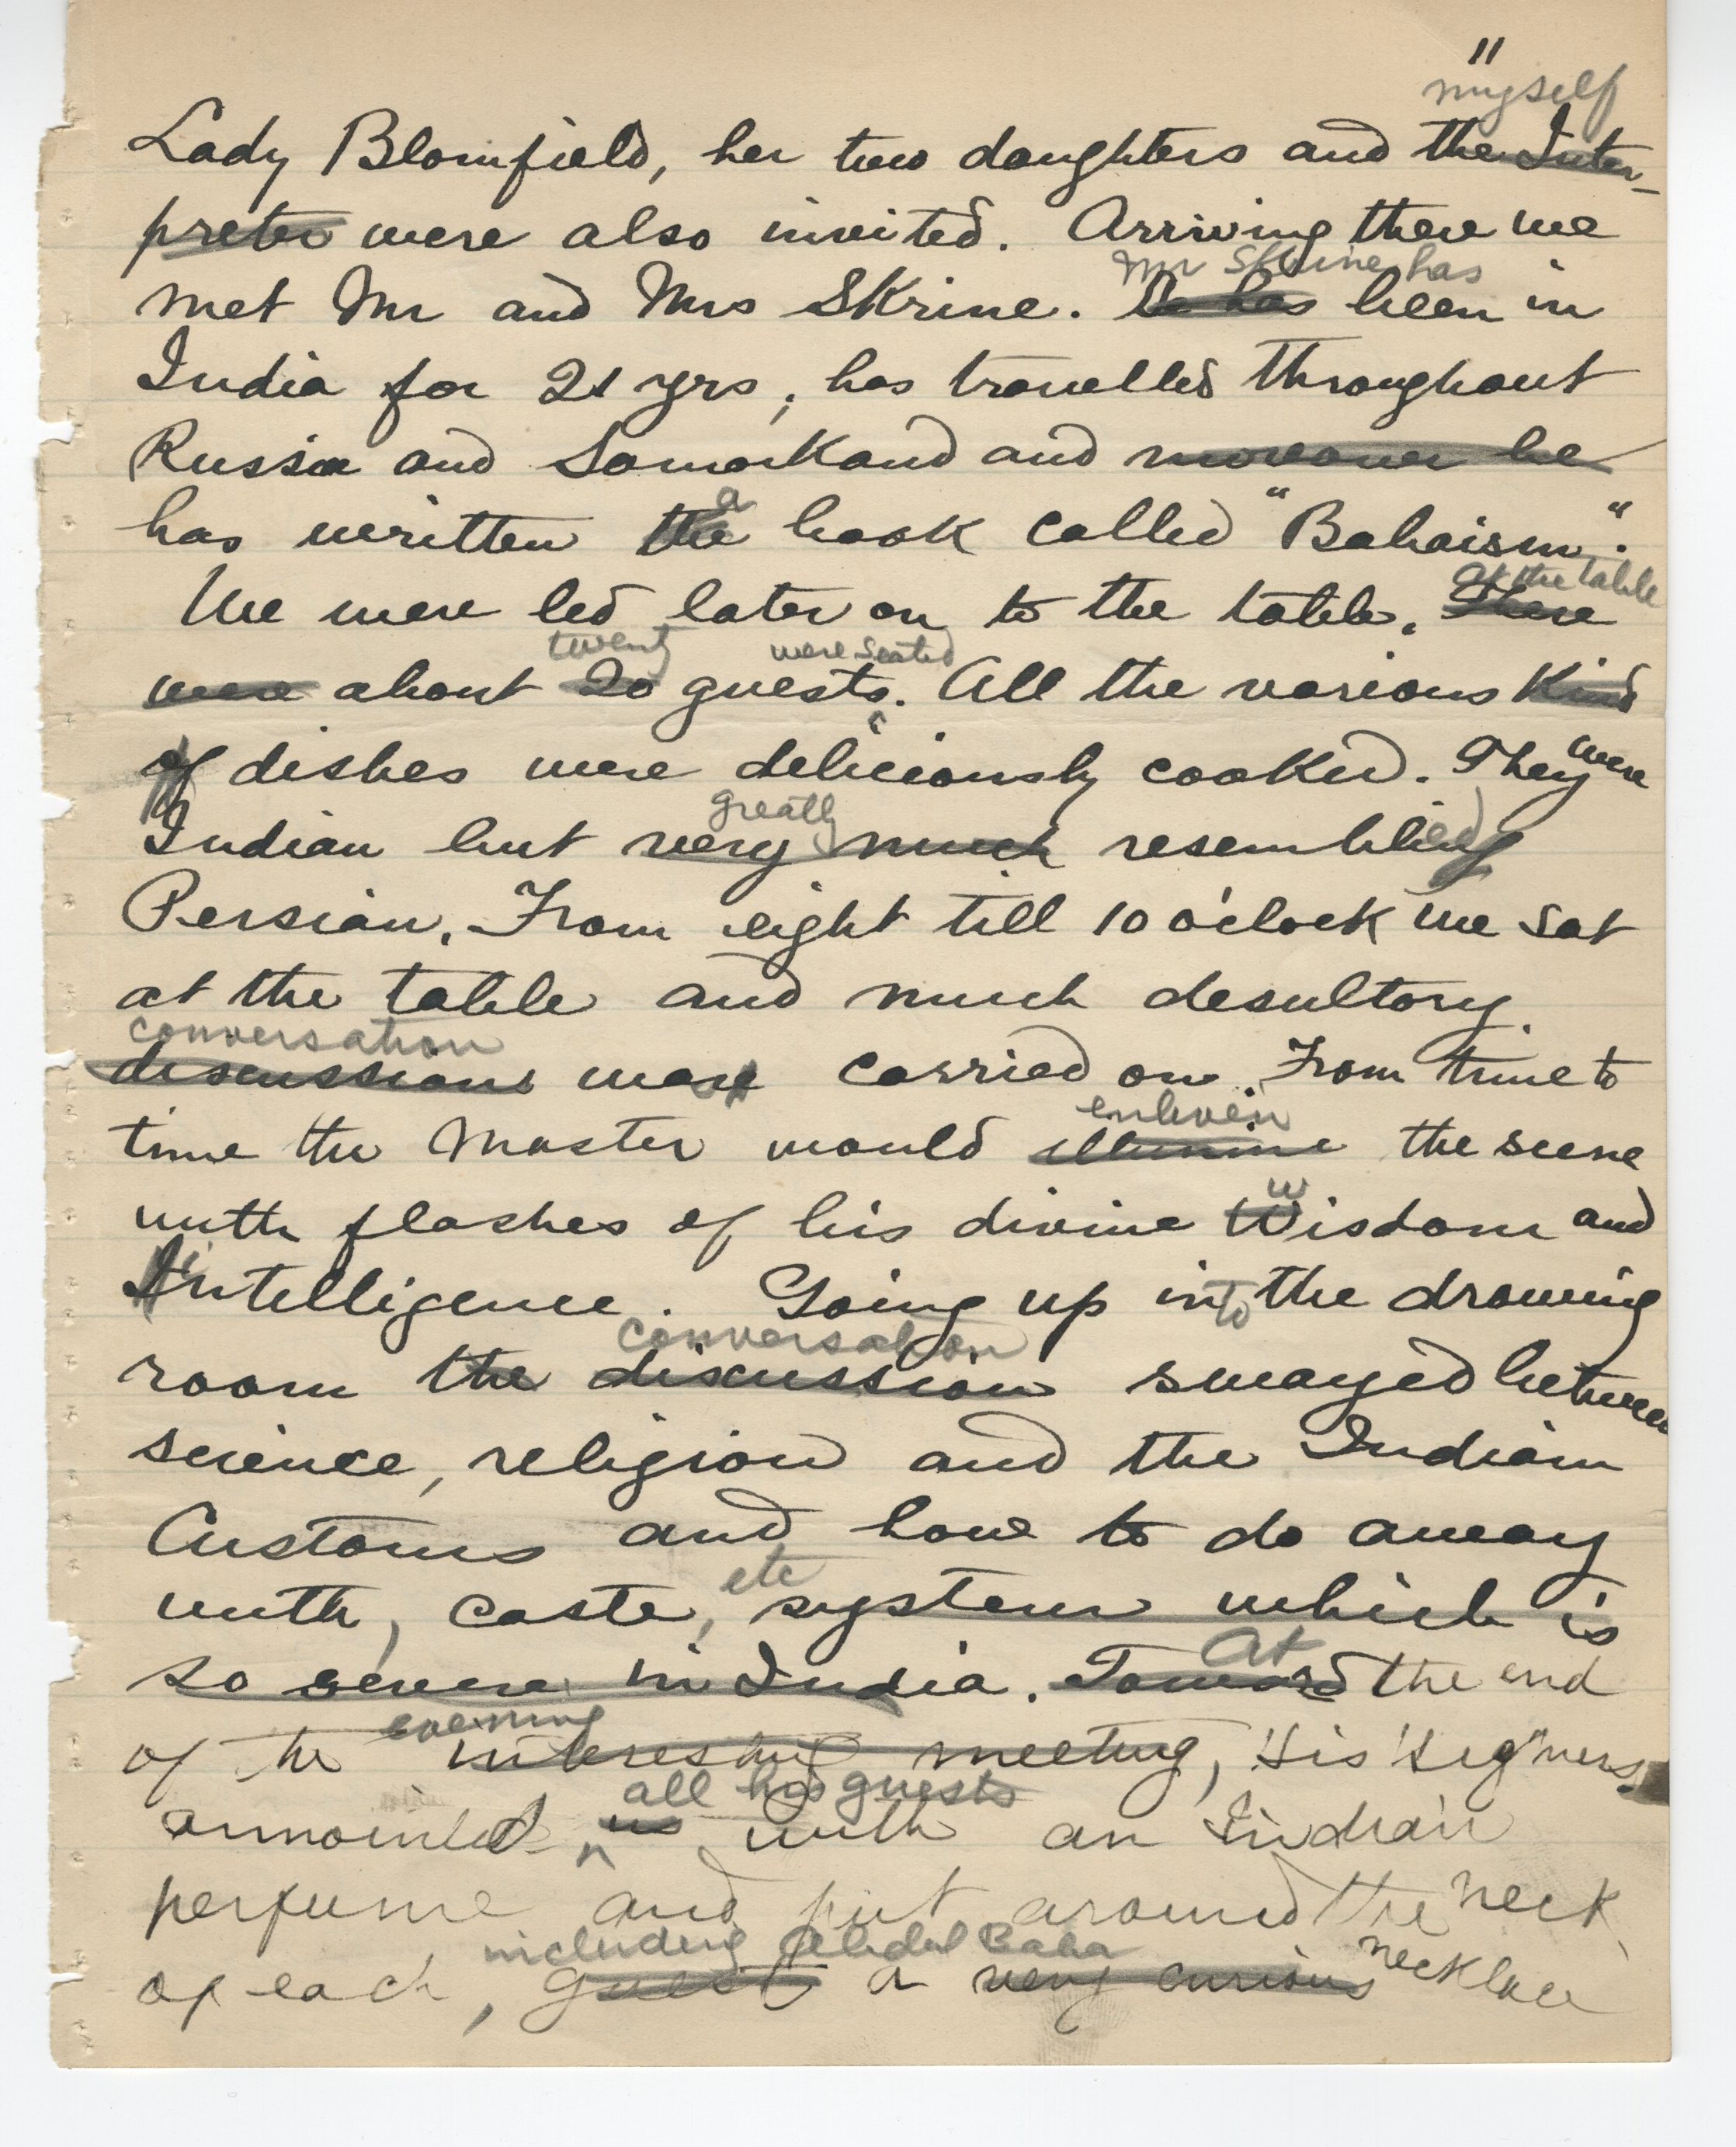 "
myself
Lady Blomfield, her two daughters and the Inter-
preter were also invited. Arriving there we
Mr Skrine has
met Mr and Mrs Skrine. He has been in
India for 21 yrs, has travelled throughout
Russia and Samarkand and moreover he
a
has written the book called "Bahaism".
at the table
We were led later on to the table. There
twenty were seated
were about 20 guests. All the various kind
of dishes were deliciously cooked. They were
greatly
Indian but very much resembling
Persian. From eight till 10 o'clock we sat
at the table and much desultory
conversation
discussions was carried on. From time to
enliven
time the Master would illumine the scene
w
with flashes of his divine Wisdom and
Intelligence. Going up into the drawing
conversation
room the discussion swayed between
science, religion and the Indian
Customs and how to do away
etc
with, caste, system which is
At
so severe in India. Toward the end
evening
of the interesting meeting, His Highness
all his guests
annointed us with an Indian
perfume and put around the neck
including Abdul Baha
of each, guest a very curious necklace